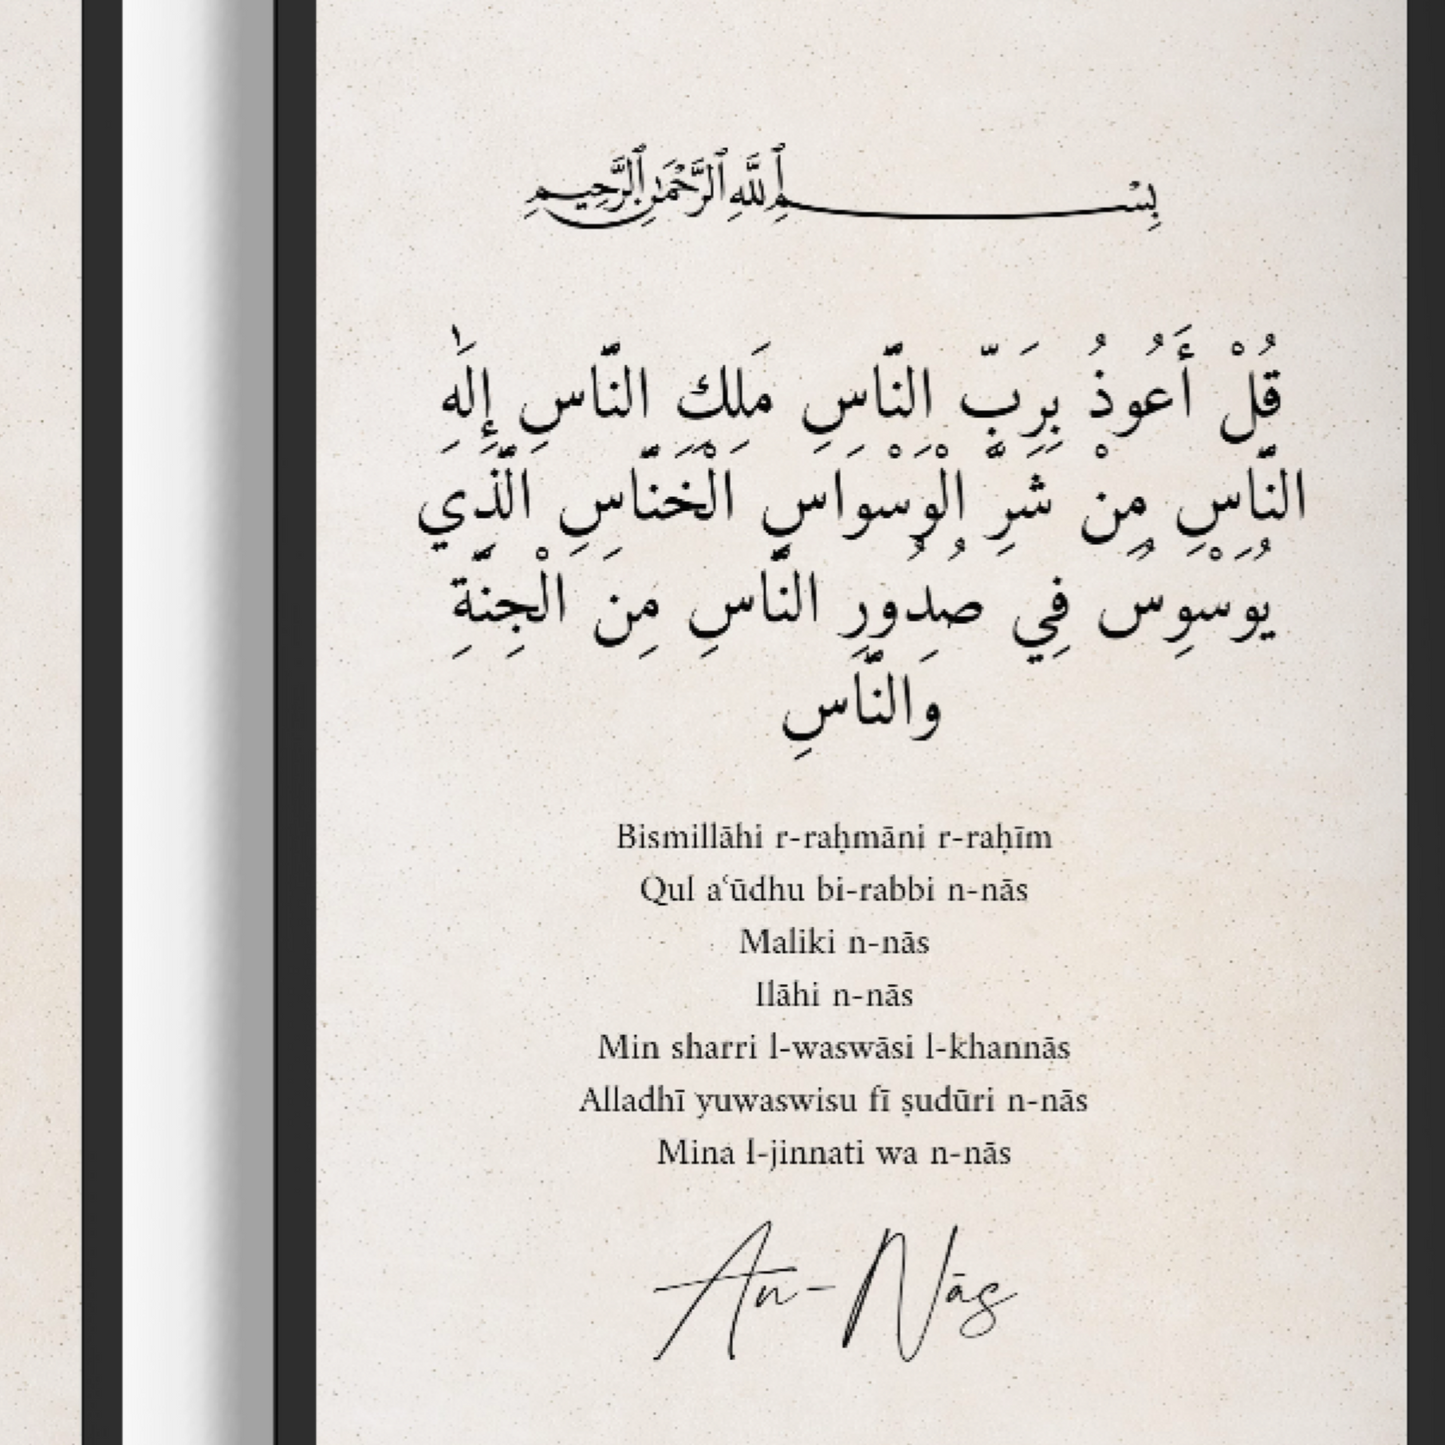 بِسْمِ ٱللَّهِ ٱلرَّحْمَٰنِ ٱلرَّحِيمِ
قُلْ أَعُوذُ بِرَبِّ النَّاسِ مَلِكِ النَّاسِ إِلَٰهِ
النَّاسِ مِنْ شَرِّ الْوَسْوَاسِ الْخَنَّاسِ الَّذِي
يُوَسْوِسُ فِي صُدُورِ النَّاسِ مِنَ الْجِنَّةِ
وَالنَّاسِ
Bismillāhi r-raḥmāni r-raḥīm
Qul aʻūdhu bi-rabbi n-nās
Maliki n-nās
Ilāhi n-nās
Min sharri l-waswāsi l-khannās
Alladhī yuwaswisu fī ṣudūri n-nās
Mina l-jinnati wa n-nās
An-Nās